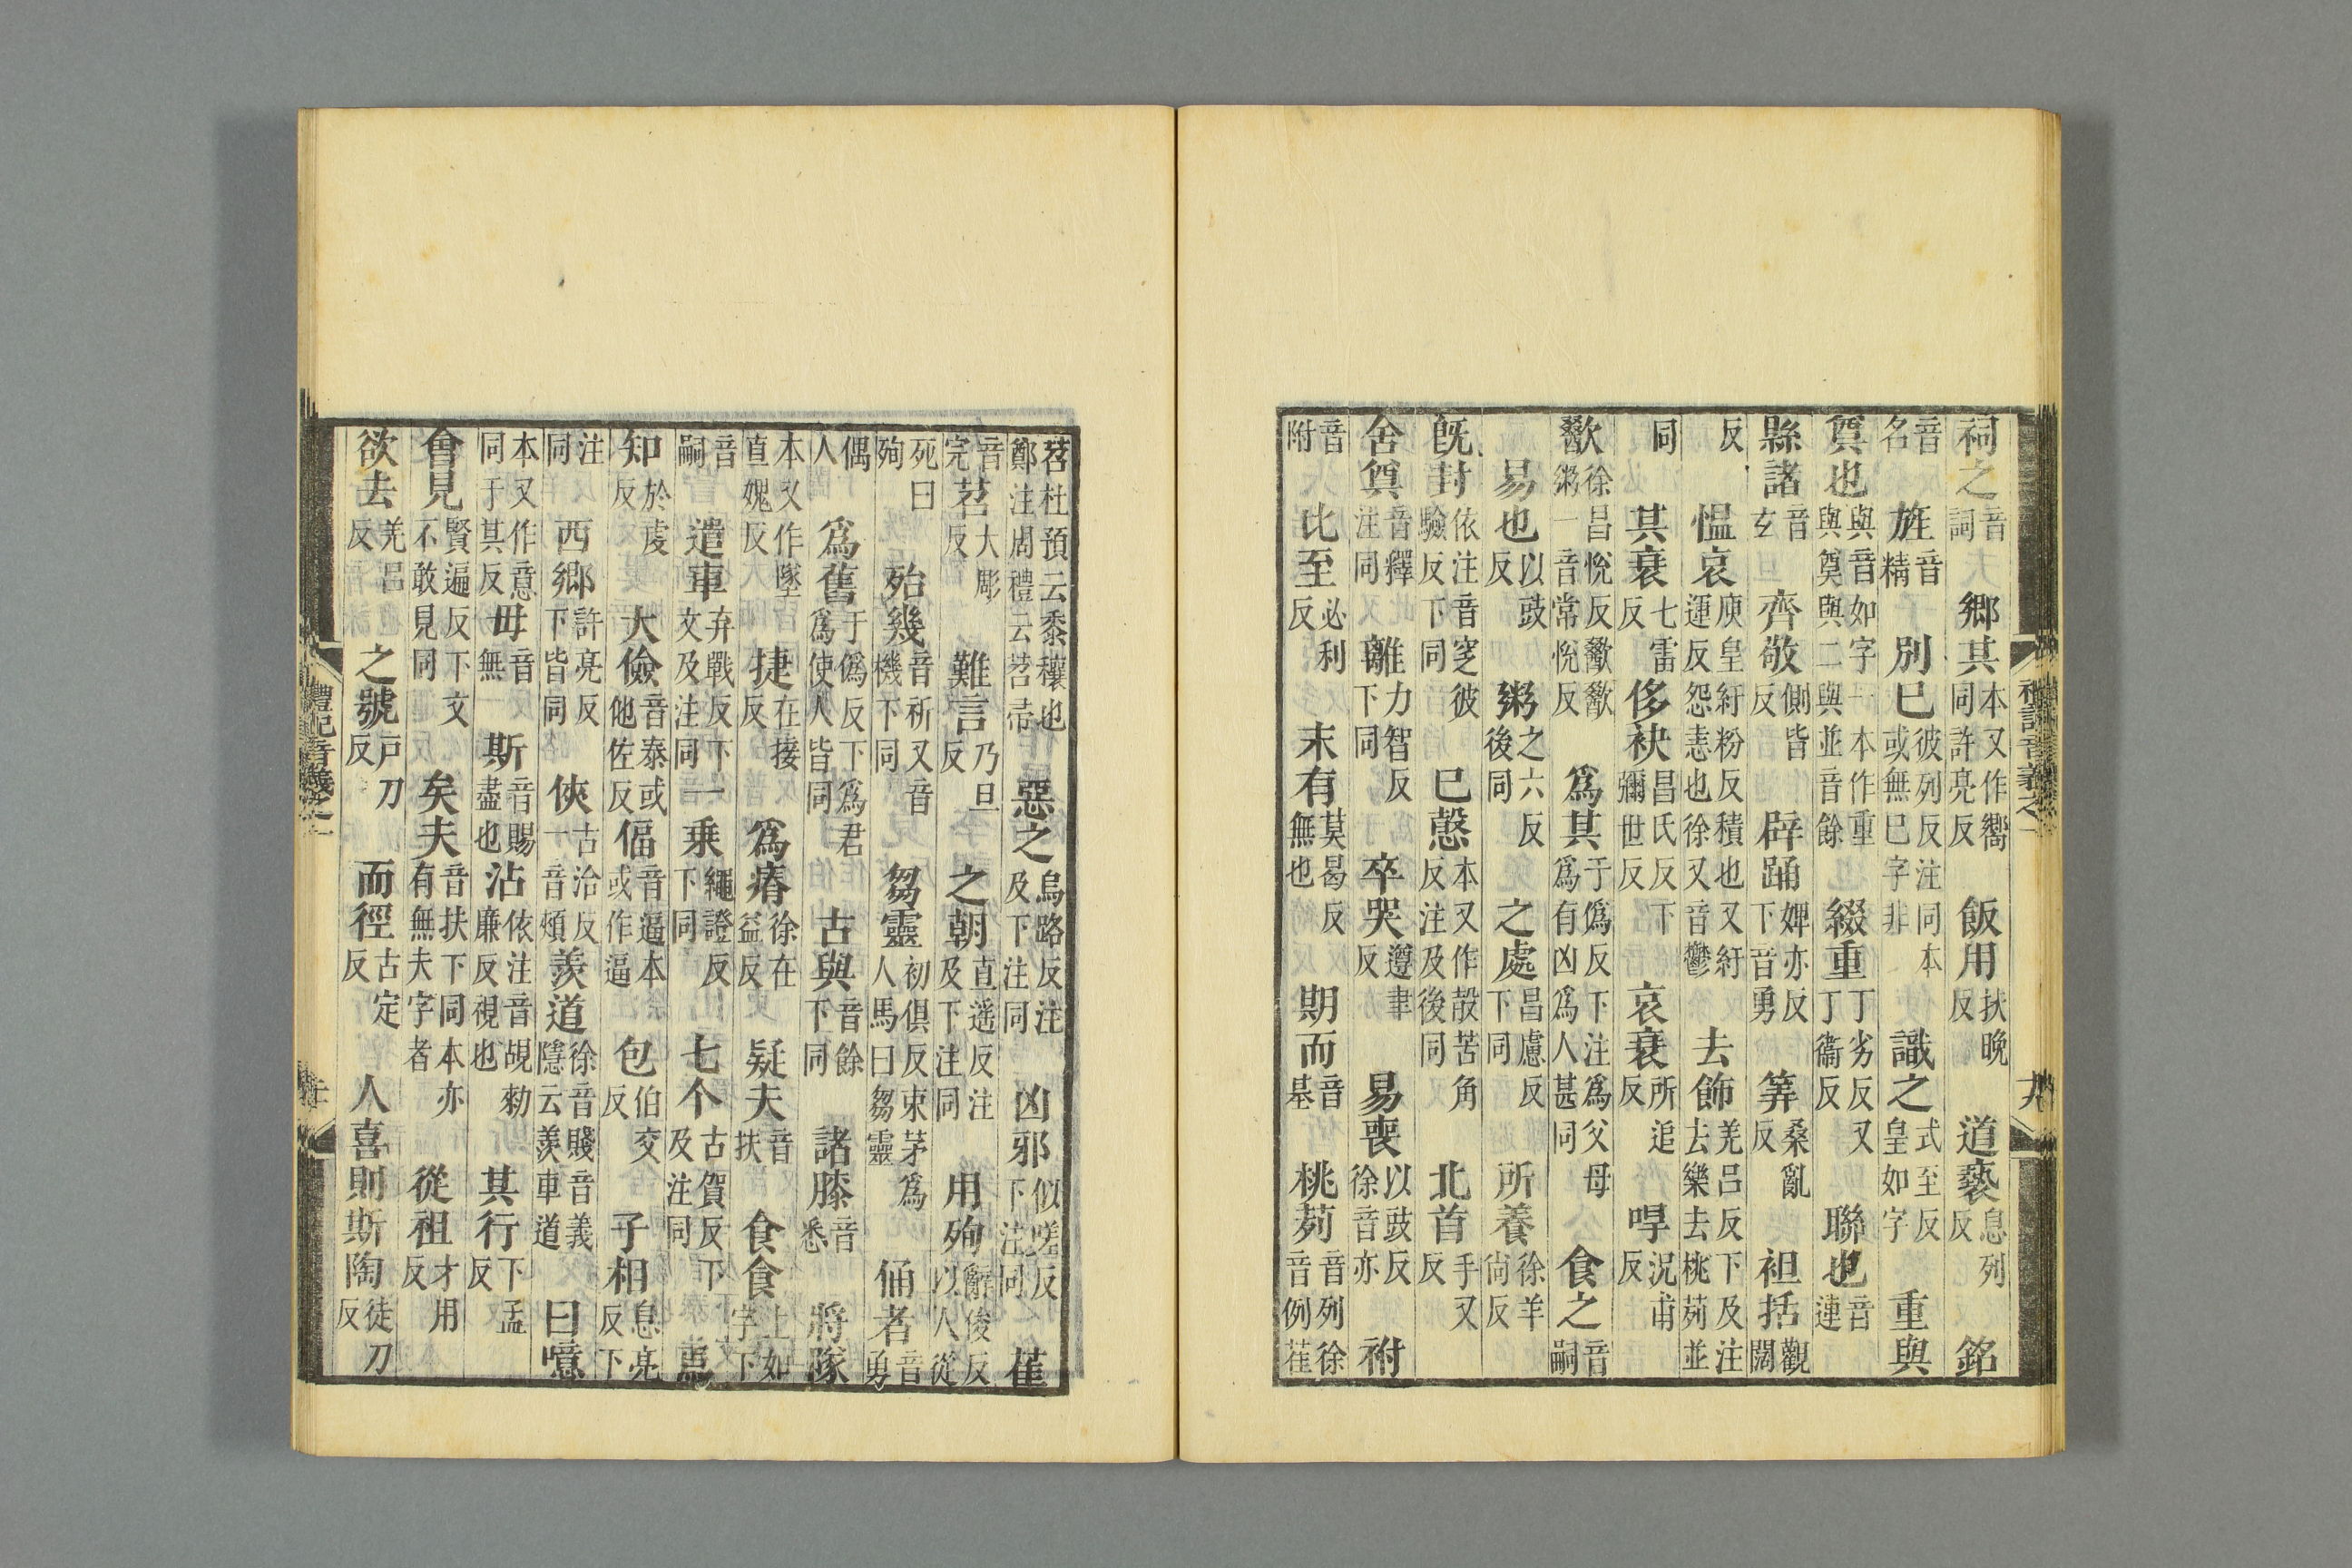 祠之音詞 鄉其本又作嚮同許亮反 飯用扶晚反 道褻息列反 銘
音名 旌音精 別已彼列反注同本或無已字非 識之式至反皇如字 重與
奠也與音如字一本作重與奠與二與並音餘 綴重丁劣反又丁衞反 聯也音連
縣諸音玄 齊敬側皆反 辟踊婢亦反下音勇 筭桑亂反 袒括觀闊
反 慍哀庾皇紆粉反積也又紆運反怨恚也徐又音鬱 去飾羌呂反下及注去樂去桃茢並
同 其衰七雷反 侈袂昌氏反下彌世反 哀衰所追反 哻況甫反
歠徐昌悅反歠歠粥一音常悅反 爲其于僞反下注爲父母爲有凶爲人甚同 食之音嗣
易也以豉反 粥之六反後同 之處昌慮反下同 所養徐羊尙反
旣封依注音窆彼驗反下同 已慤本又作㱿苦角反注及後同 北首手又反
舍奠音釋注同 離力智反下同 卒哭遵聿反 易喪以豉反徐音亦 祔
音附 比至必利反 末有莫曷反無也 期而音基 桃茢音列徐音例萑
苕杜預云黍穰也鄭注周禮云苕帚 惡之烏路反注及下注同 凶邪似嗟反下注同 萑
音完 苕大彫反 難言乃旦反 之朝直遥反注及下注同 用殉辭俊反以人從
死曰殉 殆幾音祈又音機下同 芻靈初俱反束茅爲人馬曰芻靈 俑者音勇
偶人 爲舊于僞反下爲君爲使人皆同 古與音餘下同 諸膝音悉 將隊
本又作墜直媿反 捷在接反 爲瘠徐在益反 疑夫音扶 食食上如字下
音嗣 遣車弃戰反下文及注同 一乘繩證反下同 七个古賀反下及注同 焉
知於虔反 大儉音泰或他佐反 偪音逼本或作逼 包伯交反 子相息亮反下
注同 西鄉許亮反下皆同 俠古洽反一音頰 羨道徐音賤音義隱云羨車道 曰噫
本又作意同于其反 毋音無 斯音賜盡也 沾依注音覘勑廉反視也 其行下孟反
會見賢遍反下文不敢見同 矣夫音扶下同本亦有無夫字者 從祖才用反
欲去羌呂反 之號戸刀反 而徑古定反 人喜則斯陶徒刀反
禮記音義之一